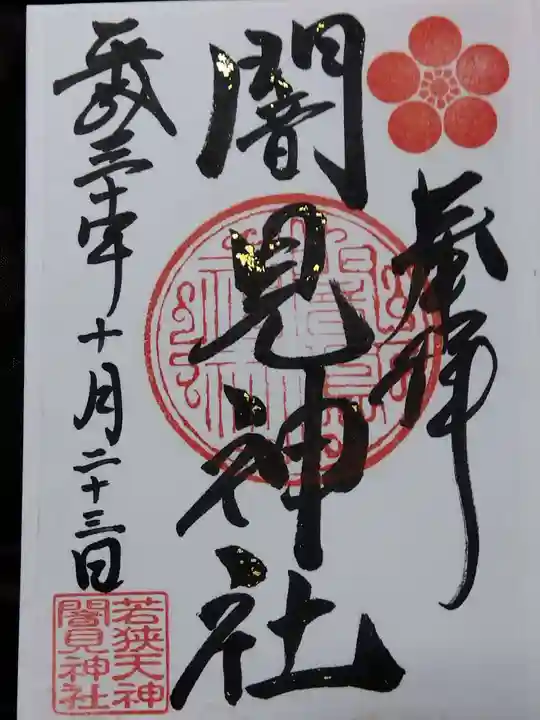 奉拝
闇見神社
平成三十年十月二十三日
若狭天神
闇見神社